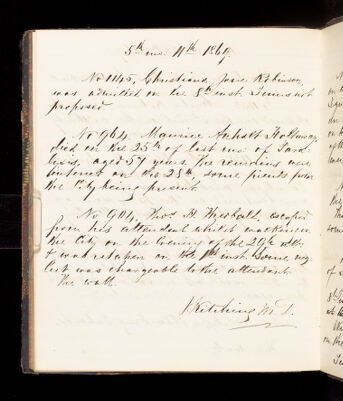 5th mo. 11th 1869.
No 1145, Christiana Jane Robinson
was admitted on the 8th inst. Terms not
proposed
No 964 Maurice Holloway
died on the 25th of last mo. of Para-
lysis, aged 57 years, the remains were
interred on the 28th, some friends from
the City being present
No 904, Thos. H. escaped
from his attendant whilst walking in
the City on the evening of the 29th ulto.
& was retaken on the 1st inst. Some neg-
lect was chargeable to the attendant
The with.
J Kitching M.D.